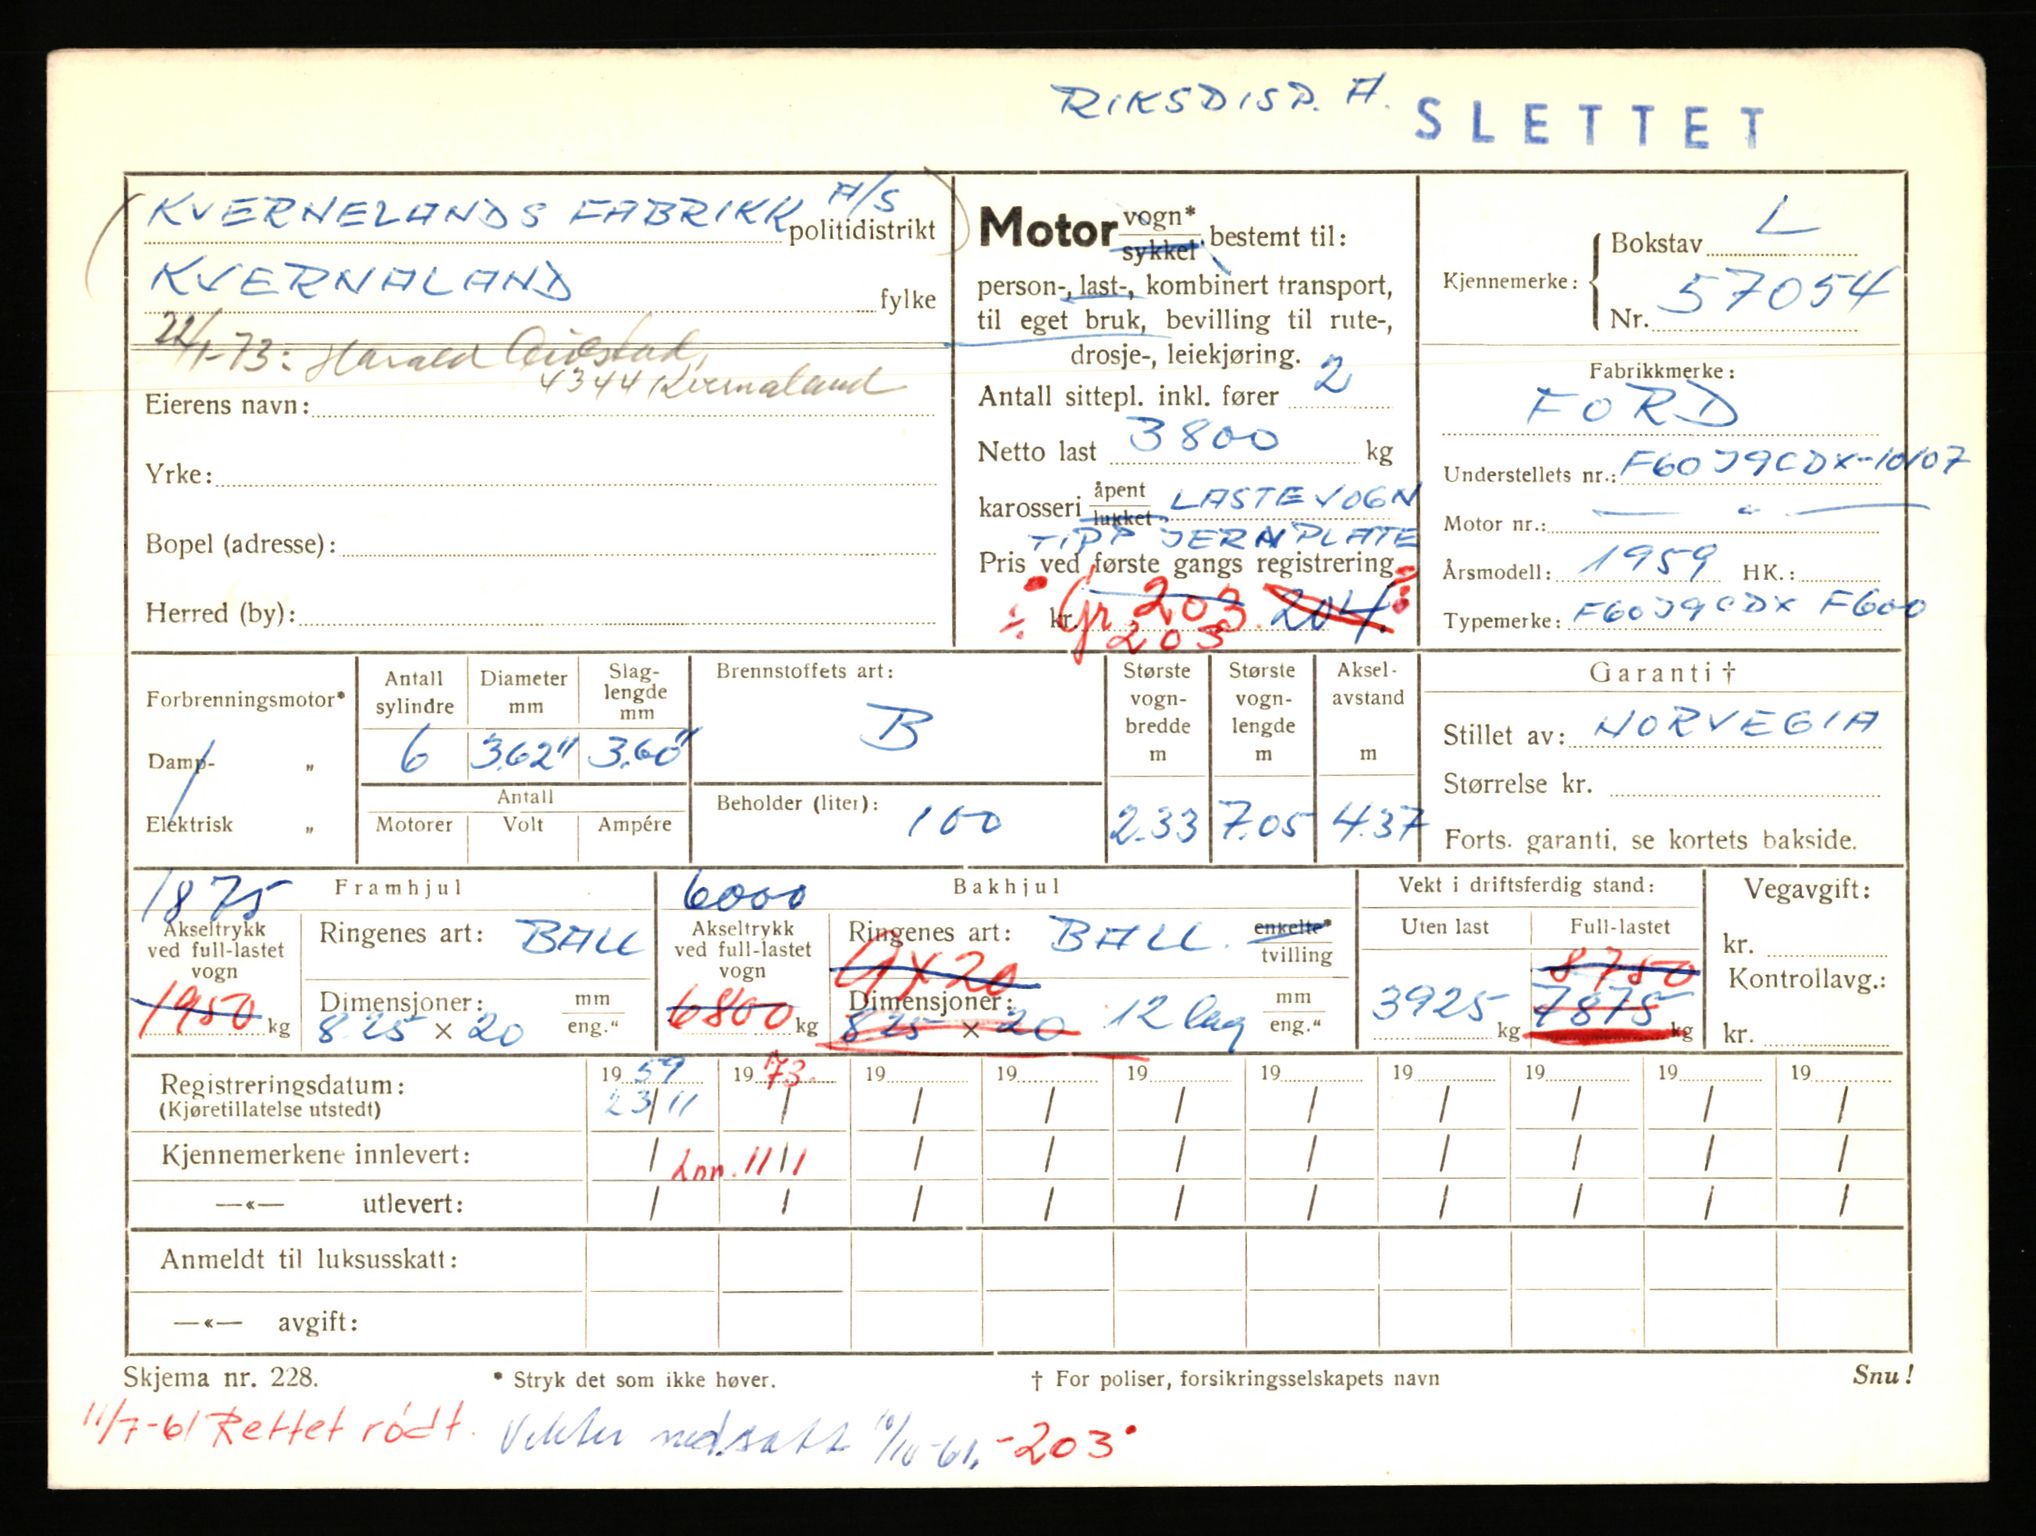 RIKSDISP. A. SLETTET
KVERNELANDS FABRIKK A/S politidistrikt
KVERNALAND fylke
22/1-73: Harald
4344 Kvernaland
Eierens navn:
Yrke:
Bopel (adresse):
Herred (by):
Motor vogn* sykkel bestemt til:
person-, last-, kombinert transport,
til eget bruk, bevilling til rute-,
drosje-, leiekjøring.
Antall sittepl. inkl. fører 2
Netto last 3800 kg
karosseri åpent lukket LASTEVOGN
TIPP JERNPLATE
Pris ved første gangs registrering
kr. Gr 203 204.
203
Kjennemerke: Bokstav L
Nr. 57054
Fabrikkmerke:
FORD
Understellets nr.: F60J9CDX-10107
Motor nr.: — " —
Årsmodell: 1959 HK.:
Typemerke: F60J9CDX F600
Forbrenningsmotor*
Damp- "
Elektrisk "
Antall sylindre 6
Diameter mm 3.62"
Slag-lengde mm 3.60"
Antall
Motorer Volt Ampére
Brennstoffets art:
B
Beholder (liter): 100
Største vogn-bredde m 2.33
Største vogn-lengde m 7.05
Aksel-avstand m 4.37
Garanti †
Stillet av: NORVEGIA
Størrelse kr.
Forts. garanti, se kortets bakside.
1875 Framhjul
Akseltrykk ved full-lastet vogn
1950 kg
Ringenes art: BALL
Dimensjoner: mm eng."
8.25 × 20
6000 Bakhjul
Akseltrykk ved full-lastet vogn
6800 kg
Ringenes art: BALL. enkelte* tvilling
9 x 20
Dimensjoner: 12 lag mm eng."
825 × 20
Vekt i driftsferdig stand:
Uten last Full-lastet
8750
3925 kg 7875 kg
Vegavgift:
kr.
Kontrollavg.:
kr.
Registreringsdatum: 19 59 19 73. 19 19 19 19 19 19 19 19
(Kjøretillatelse utstedt) 23/11 / / / / / / / / /
Kjennemerkene innlevert: / 11/1 / / / / / / / /
—«— utlevert: / / / / / / / / / /
Anmeldt til luksusskatt:
—«— avgift:
Skjema nr. 228. * Stryk det som ikke høver. † For poliser, forsikringsselskapets navn Snu!
11/7-61 Rettet rødt. Vekter nedsatt 10/10-61. -203